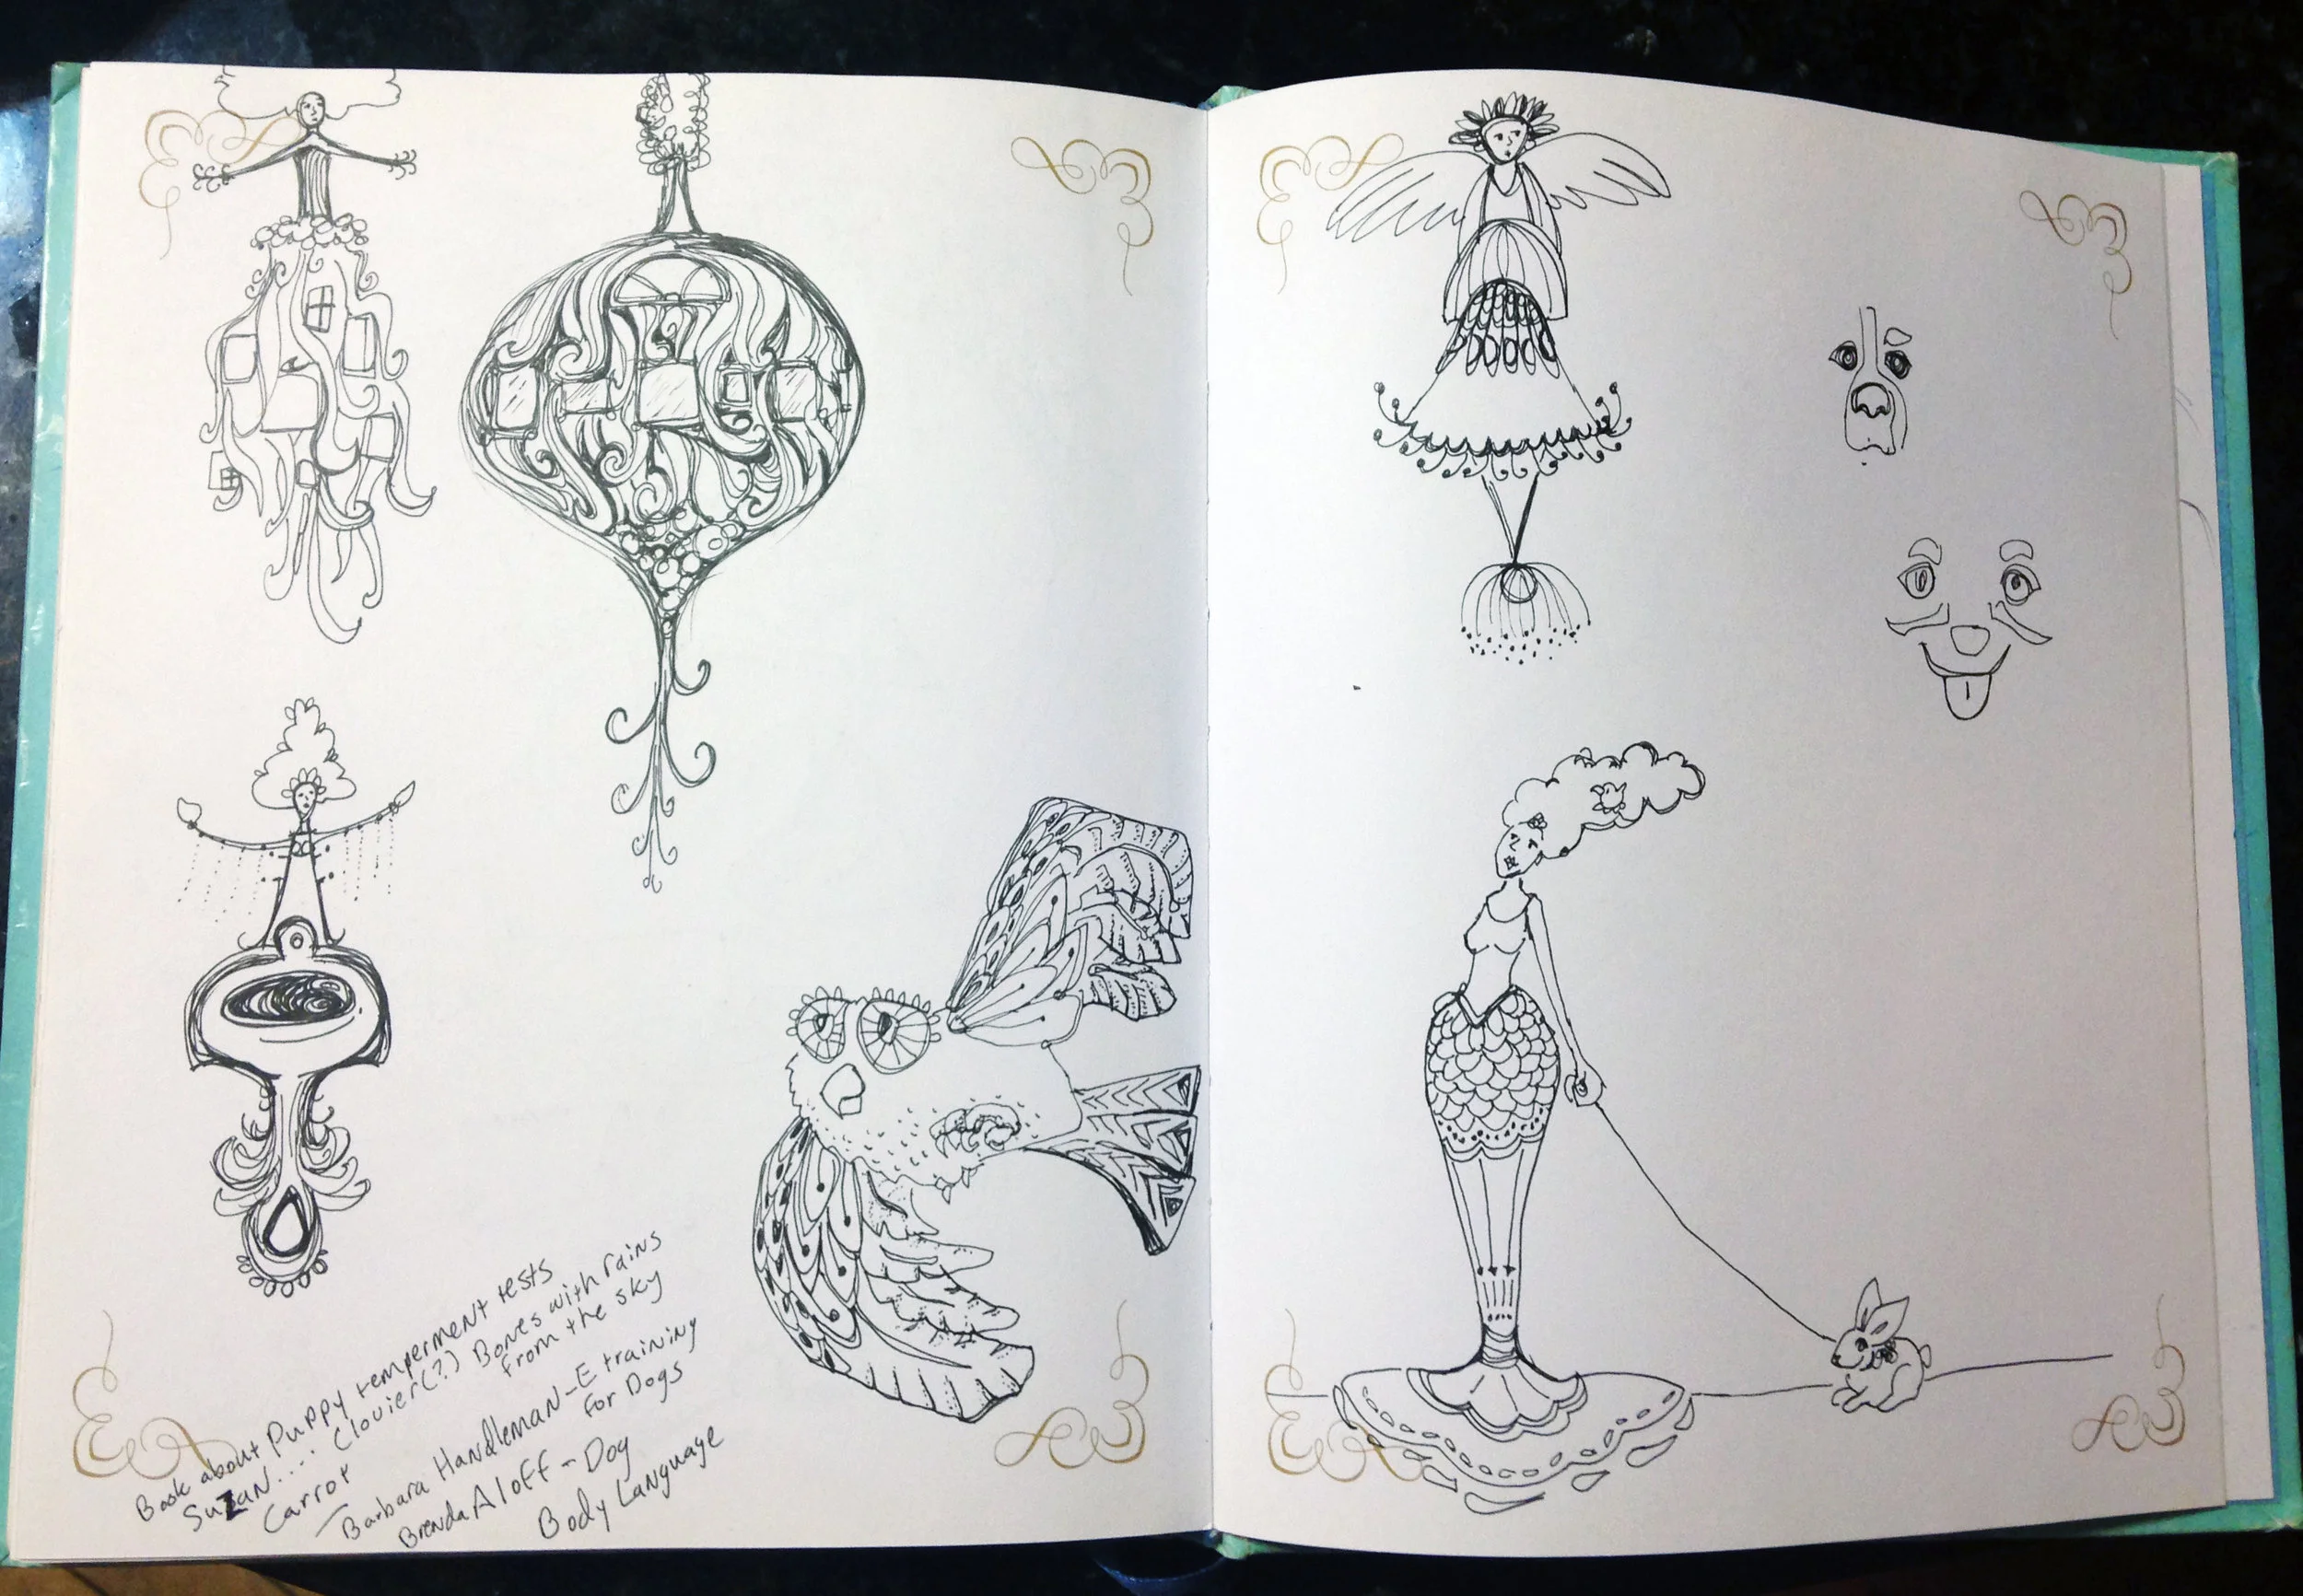 Book about Puppy temperment tests
Suzan.... Clovier(?) Bones with rains
from the sky
Carrot
Barbara Handleman - E training
for Dogs
Brenda Aloff - Dog
Body Language